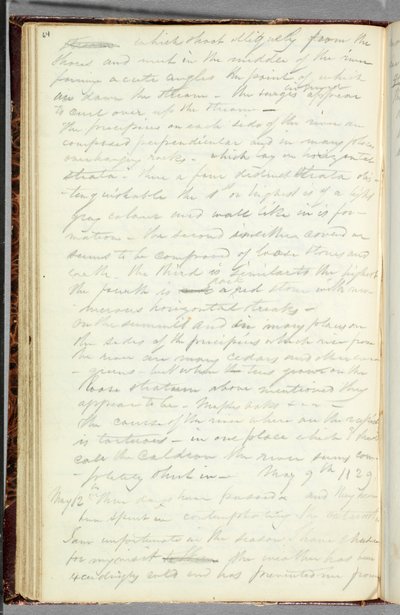 64
which shoot obliquely from the
shores and meet in the middle of the river
forming acute angles the point of which
are down the stream - the surges appear
to curl over up the stream -
the precipices on each side of the river are
composed perpendicular and in many places
overhanging rocks - which lay in horizontal
strata - there are four distinct strata dis-
-tinguishable the 1st or highest is of a light
gray colour and wall like in its for-
mation - the second is either covered or
seems to be composed of loose stones and
earth - the third is similar to the highest
the fourth is a dark red stone with nu-
merous horizontal streaks -
on the summit and in many places on
the sides of the precipices which rise from
the river are many cedars and other ever
-greens - but where the trees grow on the
loose stratum above mentioned they
appear to be - Maples oaks &c -
the course of the river where are the rapids
is tortuous - in one place which I should
call the Caldron the river seems com-
-pletely shut in - May 9th 1829
May 12th Three days have passed and they have
been spent in contemplating the
I am unfortunate in the season I have chosen
for my visit the weather has been
exceedingly cold and has prevented me from